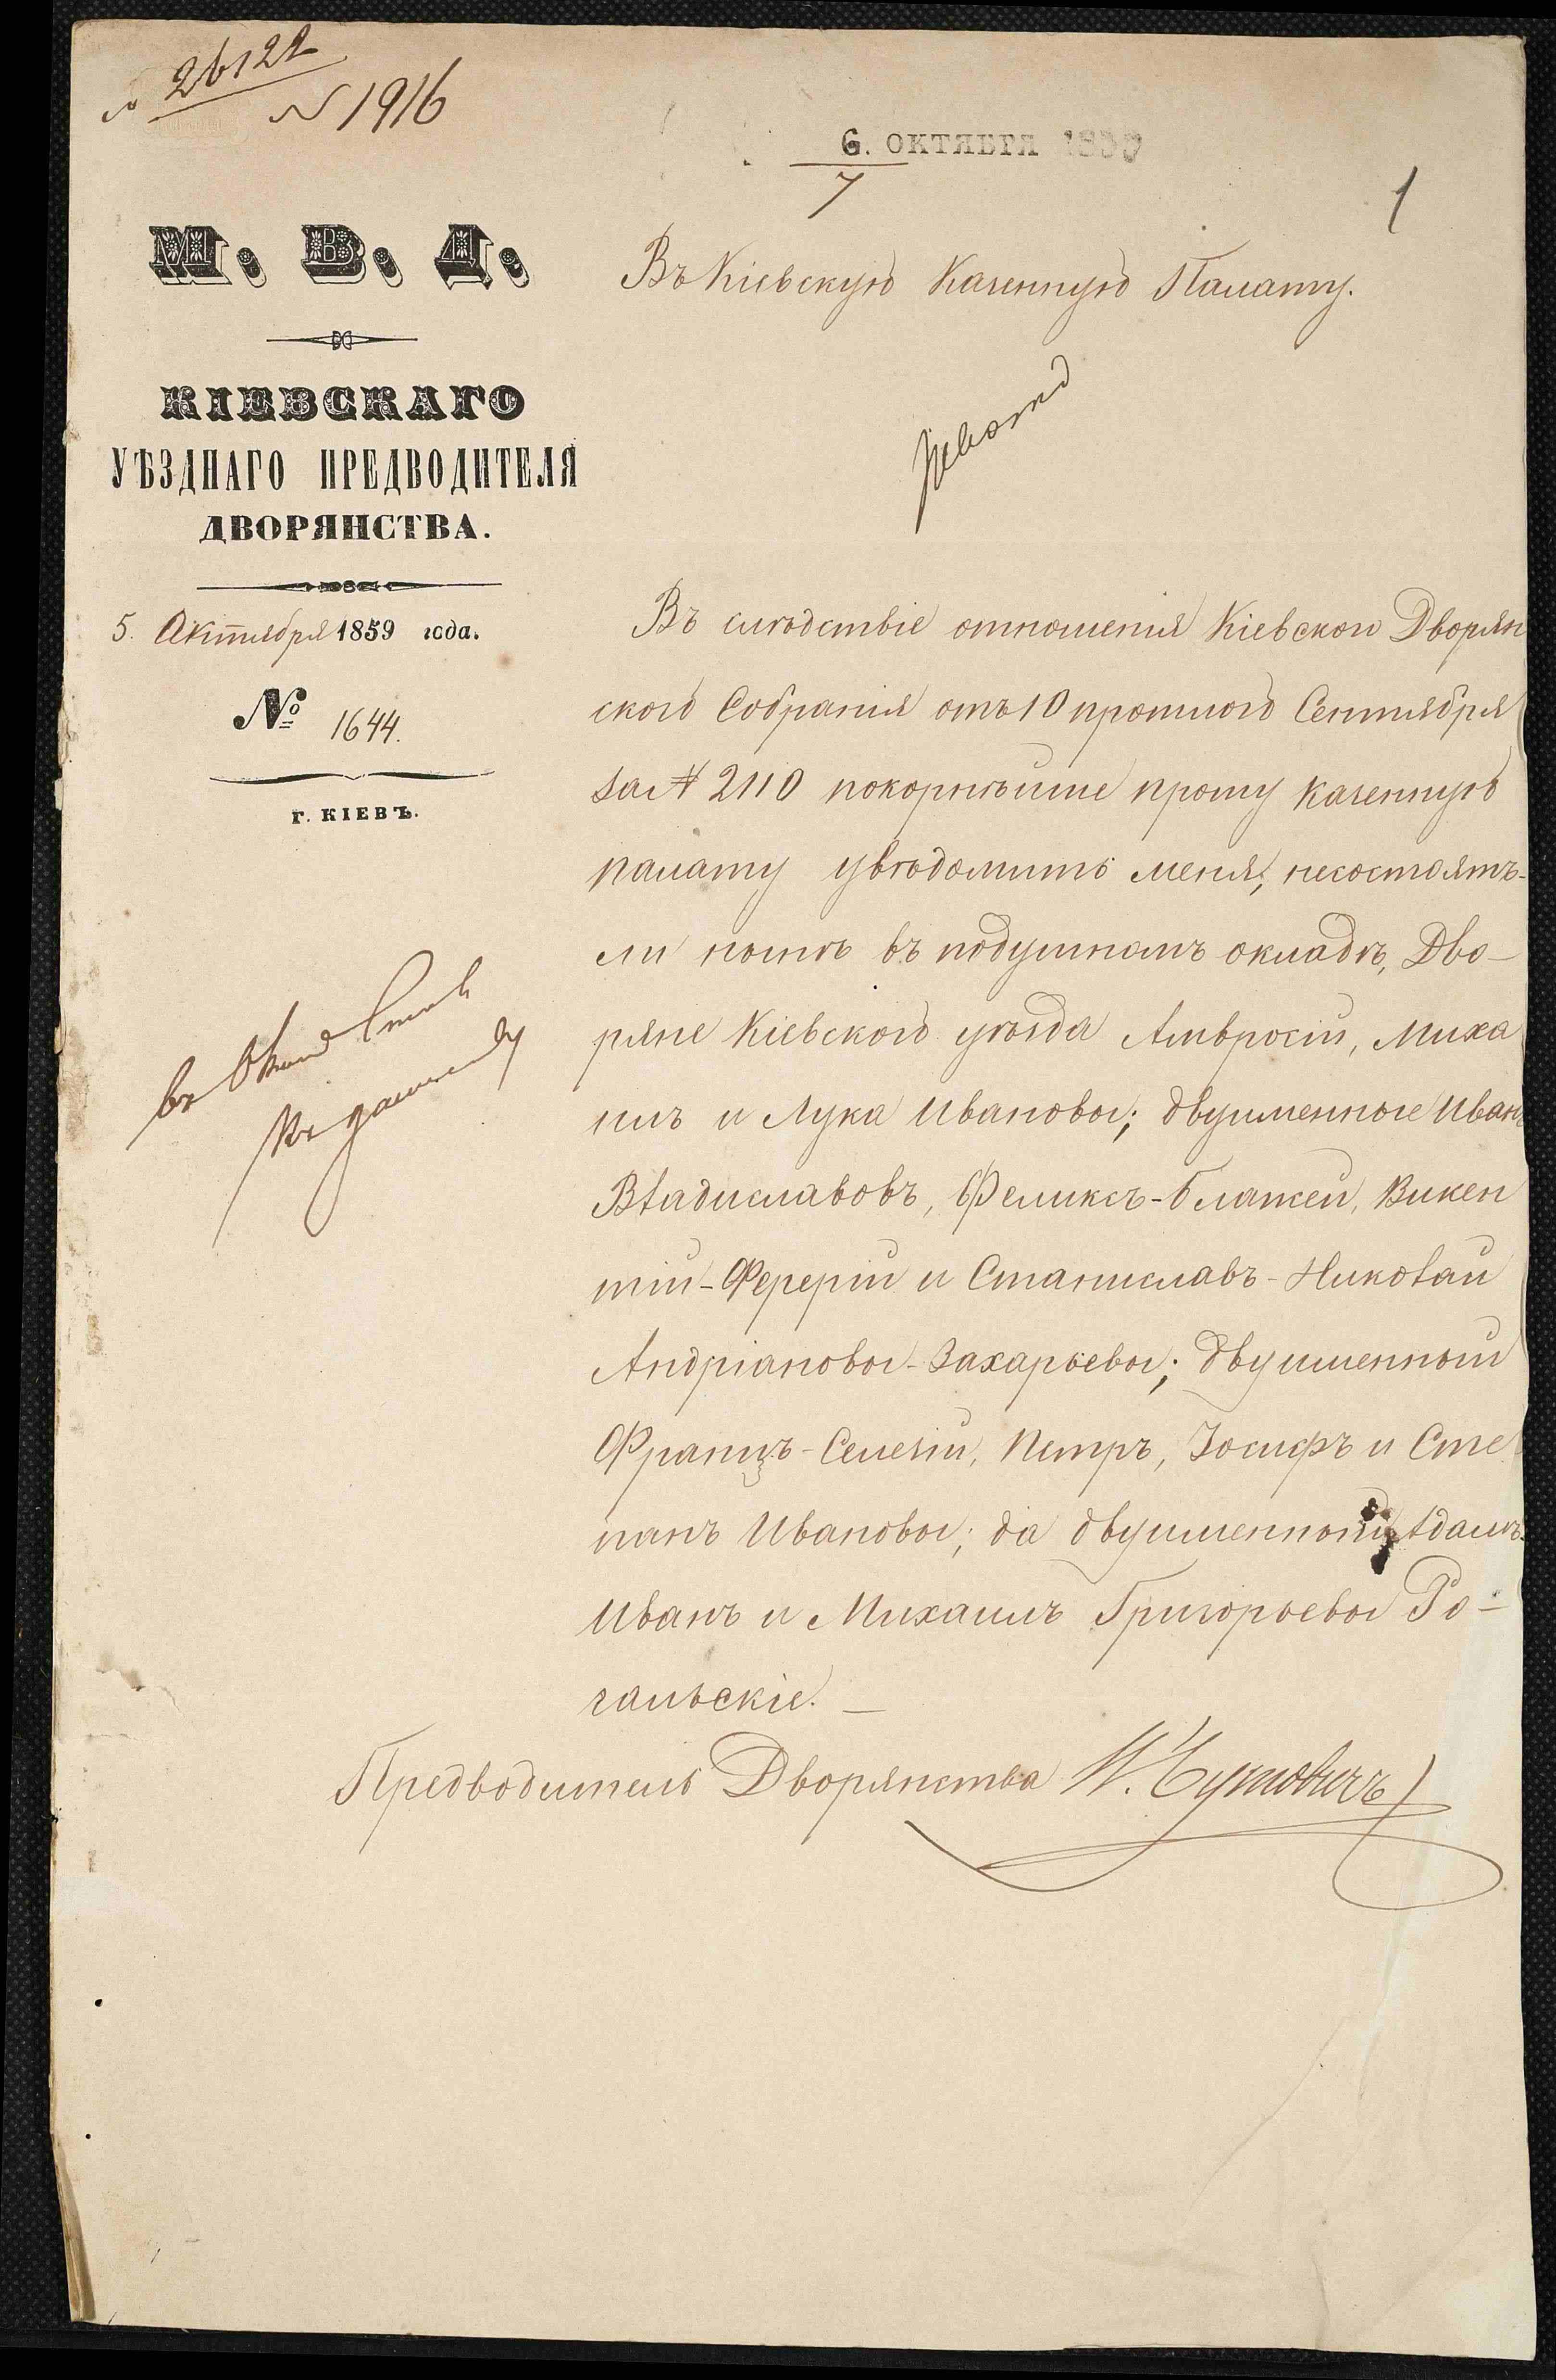 № 26122
№ 1916
6. ОКТЯБРЯ 1859
7
1
М. В. Д.
КІЕВСКАГО
УѢЗДНАГО ПРЕДВОДИТЕЛЯ
ДВОРЯНСТВА.
5. Октября 1859 года.
№ 1644.
Г. КІЕВЪ.
Въ Кіевскую Казенную Палату.
Въ слѣдствіе отношенія Кіевскаго Дворян
ского Собранія отъ 10 прошлого Сентября
за № 2110 покорнѣйше прошу Казенную
палату увѣдомить меня, несостоятъ-
ли нынѣ въ подушномъ окладѣ, Дво-
ряне Кіевского уѣзда Амвросій, Миха
илъ и Лука Ивановы; двуименные Иванъ
Владиславовъ, Феликсъ-Блажей, Викен
тій-Ферерій и Станиславъ-Николай
Андріановы-Захарьевы; двуименный
Францъ-Селезій, Петръ, Іосифъ и Сте
панъ Ивановы; да двуименный Адамъ
Иванъ и Михаилъ Григорьевы Ро-
гальскіе.
Предводитель Дворянства